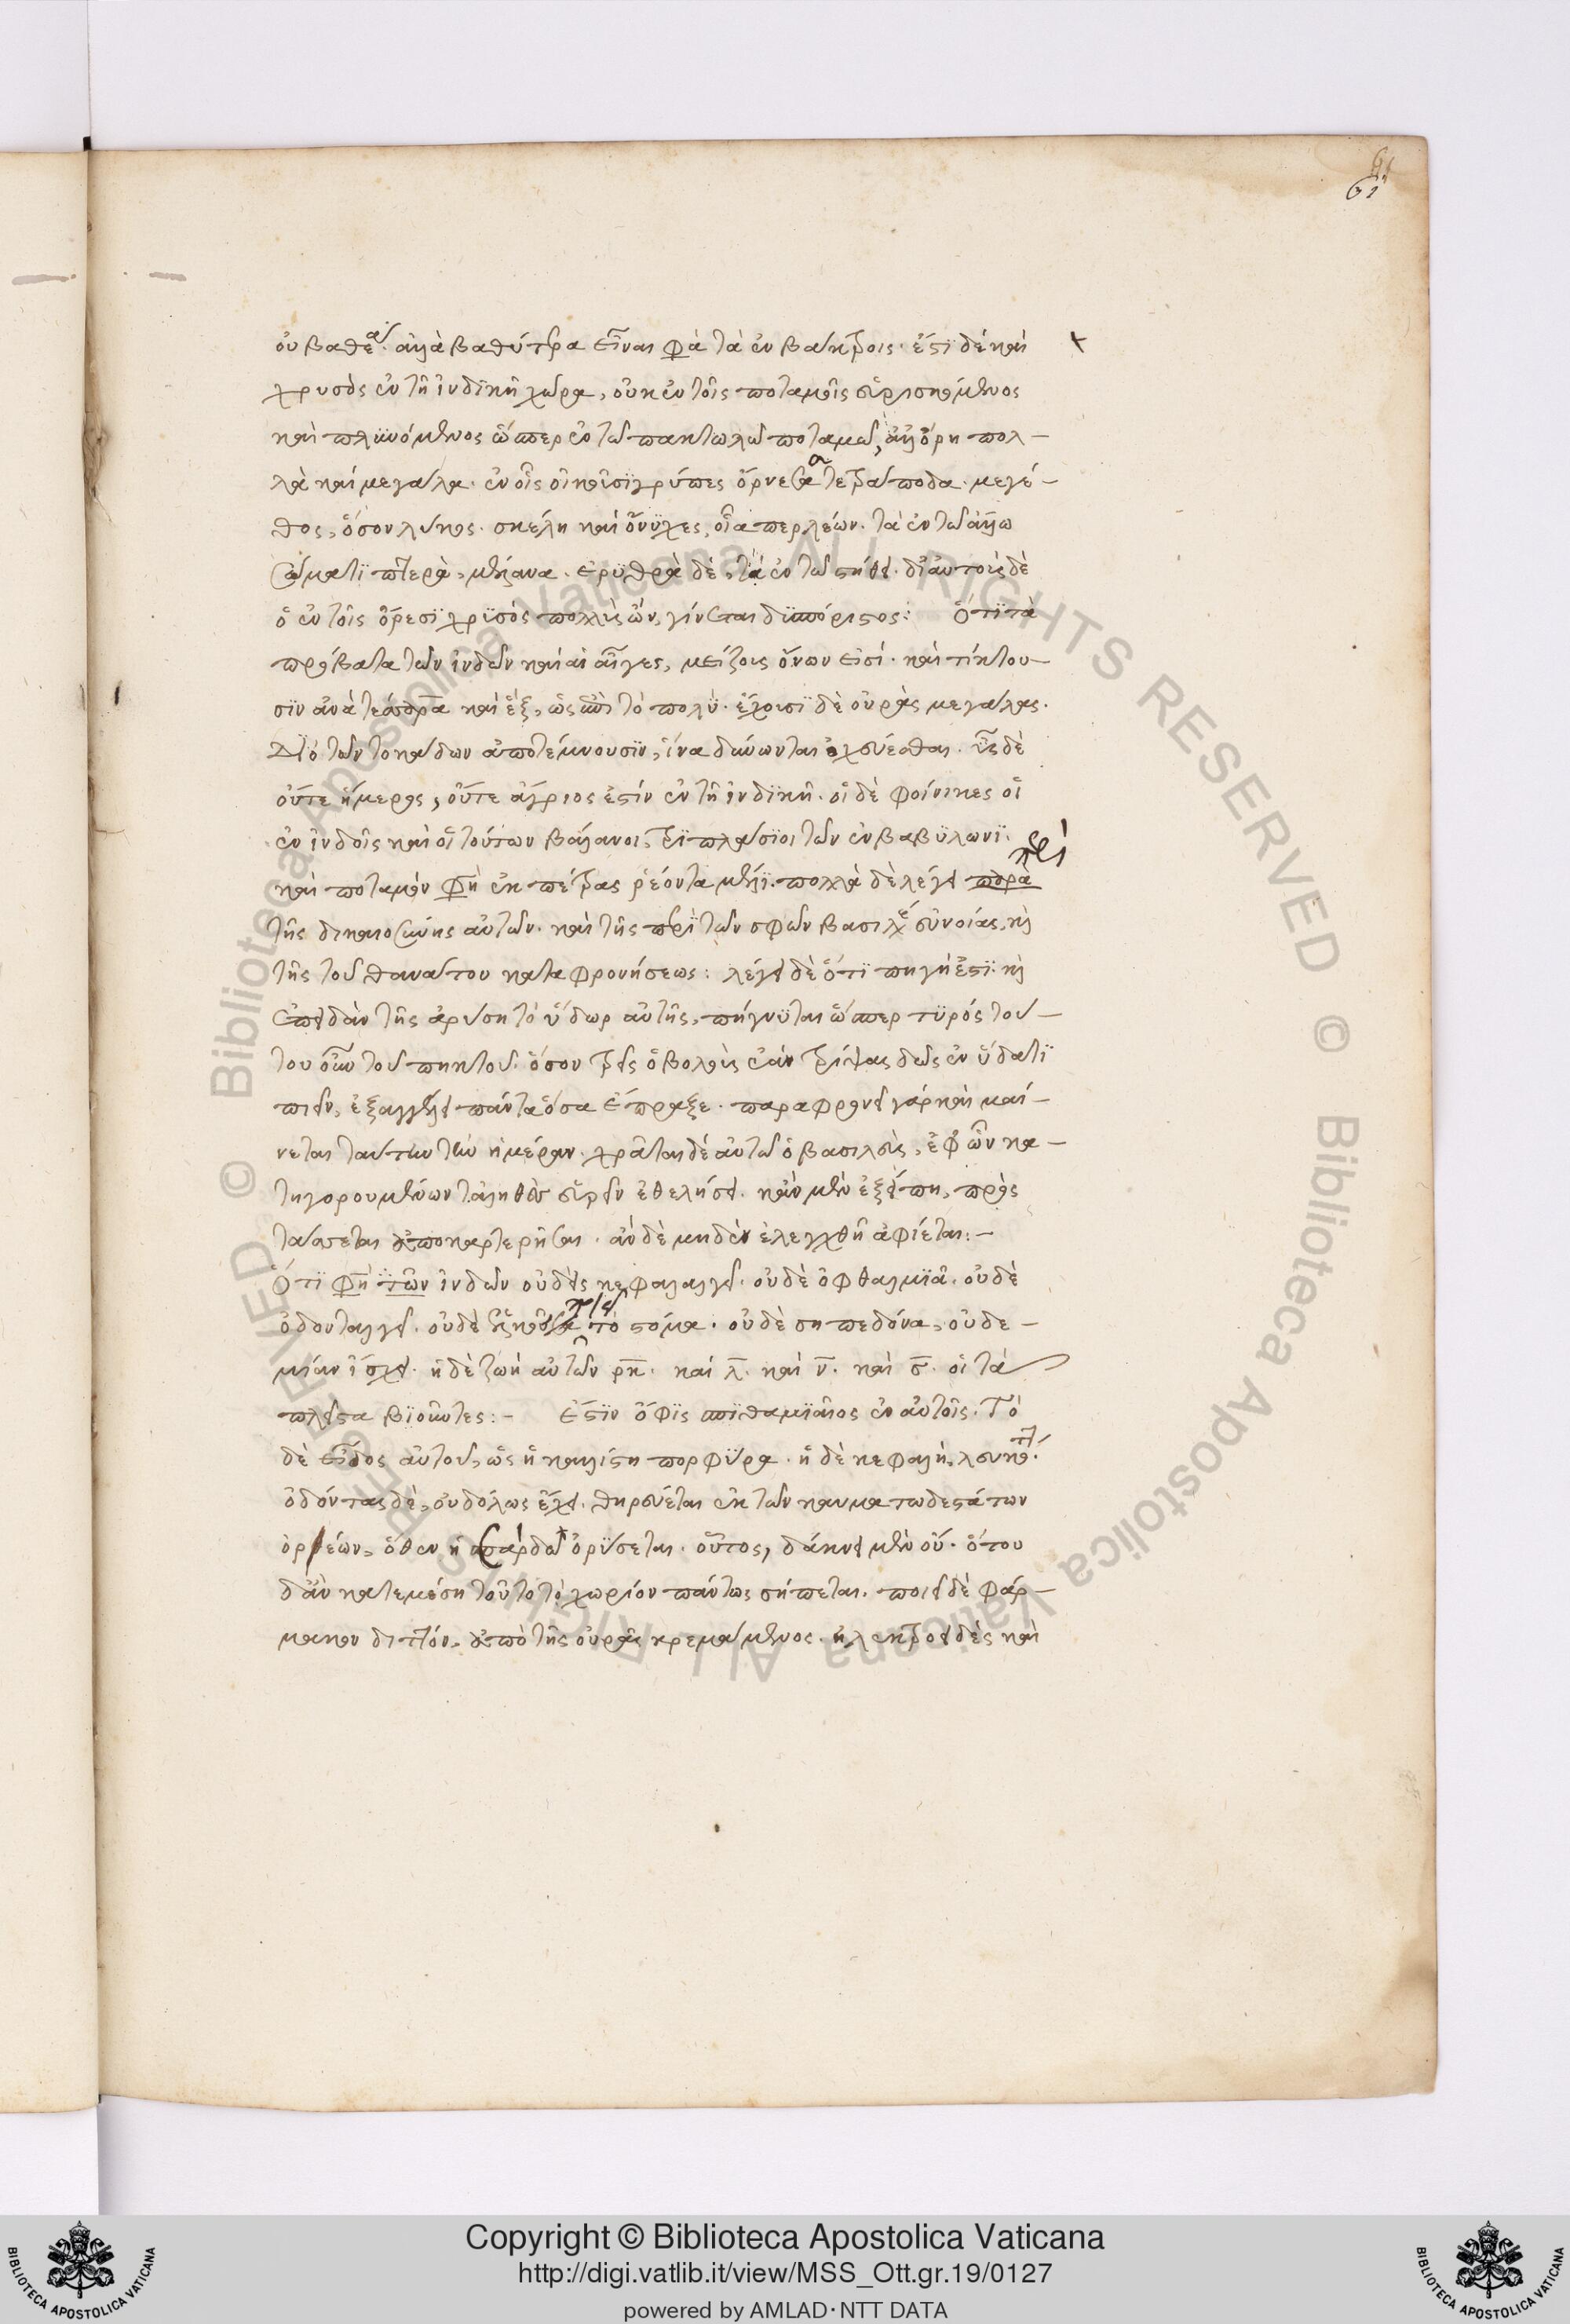 61
οὐ βαθέα· ἀλλὰ βαθύτερα εἶναι φὰ τὰ ἐν βάκτροις· ἔστϊ δέ καὶ
χρυσὸς ἐν τῇ ἰνδϊκῇ χώρᾳ, οὐκ ἐν τοῖς ποταμοῖς εὑρισκόμενος
καὶ πλυνόμενος ὥσπερ ἐν τῷ πακτωλῷ ποταμῷ, ἀλλ' ὄρη πολ-
λὰ καὶ μεγάλα· ἐν οἷς οἰκοῦσϊ γρύπες ὄρνεα τετράποδα· μεγέ-
θος, ὅσον λύκος· σκέλη καὶ ὄνϋχες, οἷα περ λέων· τὰ ἐν τῷ ἄλλῳ
σώματϊ πτερὰ, μέλανα· ἐρϋθρὰ δὲ, τὰ ἐν τῷ στήθει· δι' αὐτοὺς δὲ
ὁ ἐν τοῖς ὄρεσϊ χρϋσὸς πολλὺς ὢν, γίνεται δϋσπόριστος: Ὅτϊ τὰ
πρόβατα τῶν ἰνδῶν καὶ αἱ αἶγες, μείζους ὄνων εἰσί· καὶ τίκτου-
σϊν ἀνὰ τέσσαρα καὶ ἕξ, ὡς ἐπὶ τὸ πολϋ· ἔχουσϊ δὲ οὐρὰς μεγάλας·
Διὸ τῶν τοκάδων ἀποτέμνουσϊν, ἵνα δύνωνται ὀχεύεσθαι. ὗς δὲ
οὔτε ἥμερος, οὔτε ἄγριος ἐστίν ἐν τῇ ἰνδϊκῇ· οἱ δὲ φοίνικες οἱ
ἐν ἰνδοῖς καὶ οἱ τούτων βάλανοι, τρϊπλάσϊοι τῶν ἐν βαβϋλῶνϊ·
καὶ ποταμόν φὴ ἐκ πέτρας ῥέοντα μέλϊ· πολλὰ δὲ λέγει παρὰ περὶ
τῆς δικαιοσύνης αὐτῶν· καὶ τῆς περὶ τῶν σφῶν βασιλέα εὐνοίας, καὶ
τῆς τοῦ θανάτου καταφρονήσεως: λέγει δὲ ὅτϊ πηγή ἐστϊ· καὶ
ἐπειδὰν τῆς ἀρύσῃ τὸ ὕδωρ αὐτῆς, πήγνϋται ὥσπερ τϋρός τού-
του οὖν τοῦ πηκτοῦ· ὅσον τρεῖς ὀβολοὺς ἐὰν τρίψας δῷς ἐν ὕδατϊ
πιεῖν, ἐξαγγέλλει πάντα ὅσα ἔπραξε· παραφρονεῖ γάρ καὶ μαί-
νεται ταύτην τὴν ἡμέραν· χρᾶται δέ αὐτῷ ὁ βασιλεὺς, ἐφ' ὧν κα-
τηγορουμένων τἀληθὲς εὑρεῖν ἐθελήσει· κἂν μὲν ἐξείπῃ, πρὸς
τάσσεται ἀποκαρτερῆσαι· ἂν δὲ μηδὲν ἐλεγχθῇ ἀφίεται:-
Ὅτϊ φὴ τῶν ἰνδῶν οὐδεὶς κεφαλαλγεῖ· οὐδὲ ὀφθαλμϊᾷ· οὐδὲ
ὀδονταλγεῖ· οὐδὲ ἑλκοῦται τὸ στόμα· οὐδὲ σηπεδόνα, οὐδε-
μίαν ἴσχει· ἡ δὲ ζωὴ αὐτῶν ρκ· καί λ· καὶ ν· καὶ σ· οἱ τὰ
πλεῖστα βϊοῦντες:- Ἔστϊν ὄφϊς σπϊθαμϊαῖος ἐν αὐτοῖς· Τὸ
δὲ εἶδος αὐτοῦ, ὡς ἡ καλλίστη πορφύρα· ἡ δὲ κεφαλὴ, λευκοτ·
ὀδόντας δὲ, οὐδόλως ἔχει· θηρεύεται ἐκ τῶν καυματωδεστάτων
ὀρέων, ὅθεν ἡ σαρδὼ ὀρϋσεται· οὗτος, δάκνει μὲν οὔ· ὅτου
δ' ἂν κατεμέσῃ τοῦτο τὸ χωρίον πάντως σήπεται· ποιεῖ δὲ φάρ-
μακον διττόν, ἀπὸ τῆς οὐρᾶς κρεμάμενος· ἠλεκτροειδὲς καὶ
Copyright © Biblioteca Apostolica Vaticana
http://digi.vatlib.it/view/MSS_Ott.gr.19/0127
powered by AMLAD·NTT DATA